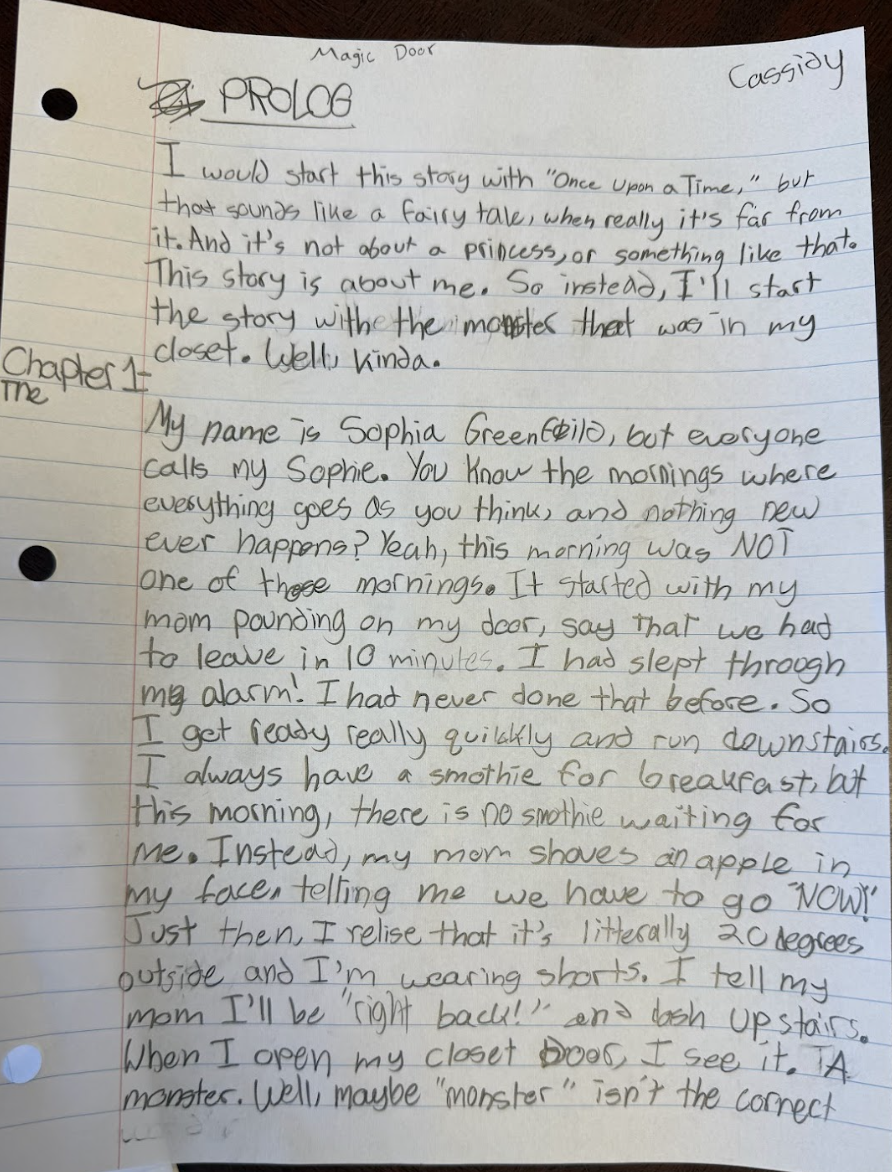 Magic Door
Cassidy
PROLOG
I would start this story with "Once Upon a Time," but
that sounds like a fairy tale, when really it's far from
it. And it's not about a princess, or something like that.
This story is about me. So instead, I'll start
the story with the monster that was in my
closet. Well, kinda.
Chapter 1-
The
My name is Sophia Greenfeild, but everyone
calls my Sophie. You know the mornings where
everything goes as you think, and nothing new
ever happens? Yeah, this morning was NOT
one of those mornings. It started with my
mom pounding on my door, say that we had
to leave in 10 minutes. I had slept through
my alarm! I had never done that before. So
I get ready really quickly and run downstairs.
I always have a smothie for breakfast, but
this morning, there is no smothie waiting for
me. Instead, my mom shoves an apple in
my face, telling me we have to go "NOW!"
Just then, I relise that it's litterally 20 degrees
outside and I'm wearing shorts. I tell my
mom I'll be "right back!" and dash upstairs.
When I open my closet Door, I see it. A
monster. Well, maybe "monster" isn't the correct